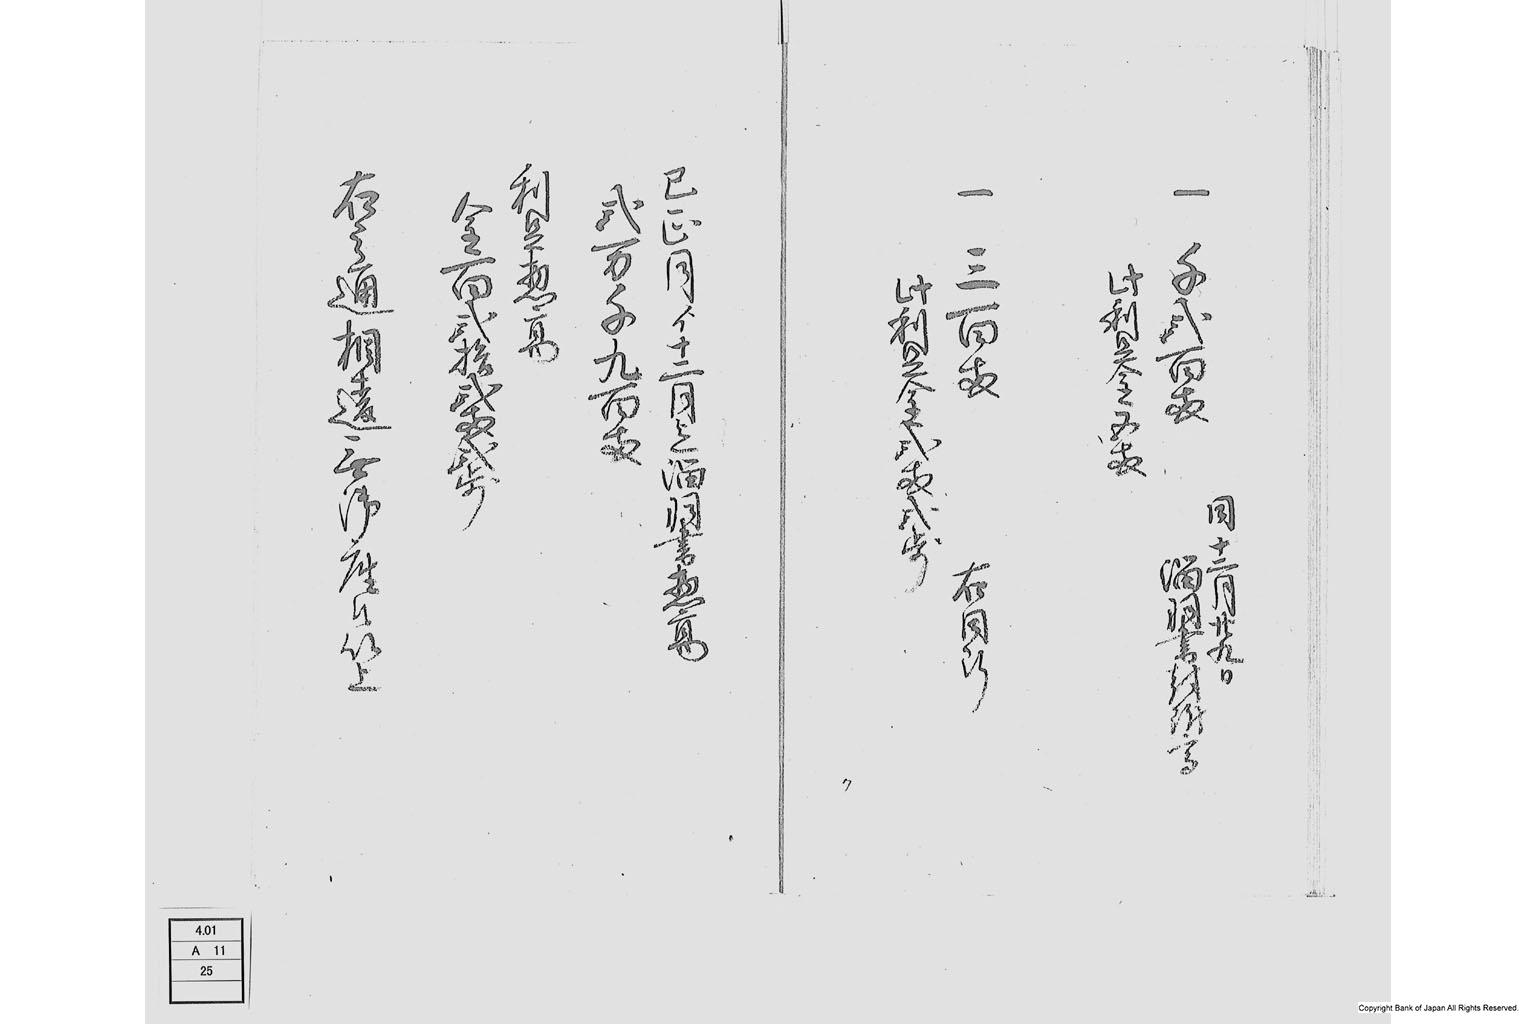 一 千弐百両
同十二月廿九日
溜羽書
此利足金五両
一 三百両 右同断
此利足金弐両弐歩
巳正月ゟ十二月迄溜羽書惣高
弐万千九百両
利足惣高
金百弐拾弐両弐歩
右之通相違無御座候以上
4.01
A 11
25
Copyright Bank of Japan All Rights Reserved.